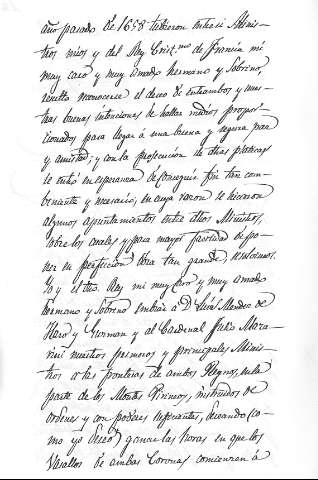 año pasado de 1658 tubieron entre si Minis-
tros mios y del Rey Crist.mo de Francia mi
muy caro y muy amado hermano y Sobrino,
resulto reconocerse el deseo de entrambos y nues-
tras buenas intenciones de hallar medios propor-
cionados para llegar á una buena y segura paz
y amistad; y con la prosecucion de otras platicas
se entró en esperanza de conseguir fin tan com-
beniente y necesario; en cuya razon se hicieron
algunos apuntamientos entre ellos Ministros,
sobre los cuales y para mayor facilidad de po-
ner en perfeccion obra tan grande, resolvimos
Yo y el otro Rey mi muy caro y muy amado
hermano y Sobrino embiar á D. Luis Mendez de
Haro y Guzman y al Cardenal Julio Maza-
rini nuestros primeros y principales Minis-
tros á las fronteras de ambos Reynos, en la
parte de los Montes Pirineos, instruidos de
ordenes y con poderes suficientes, deseando (co-
mo yo deseo) ganar las horas en que los
Vasallos de ambas Coronas comienzen á